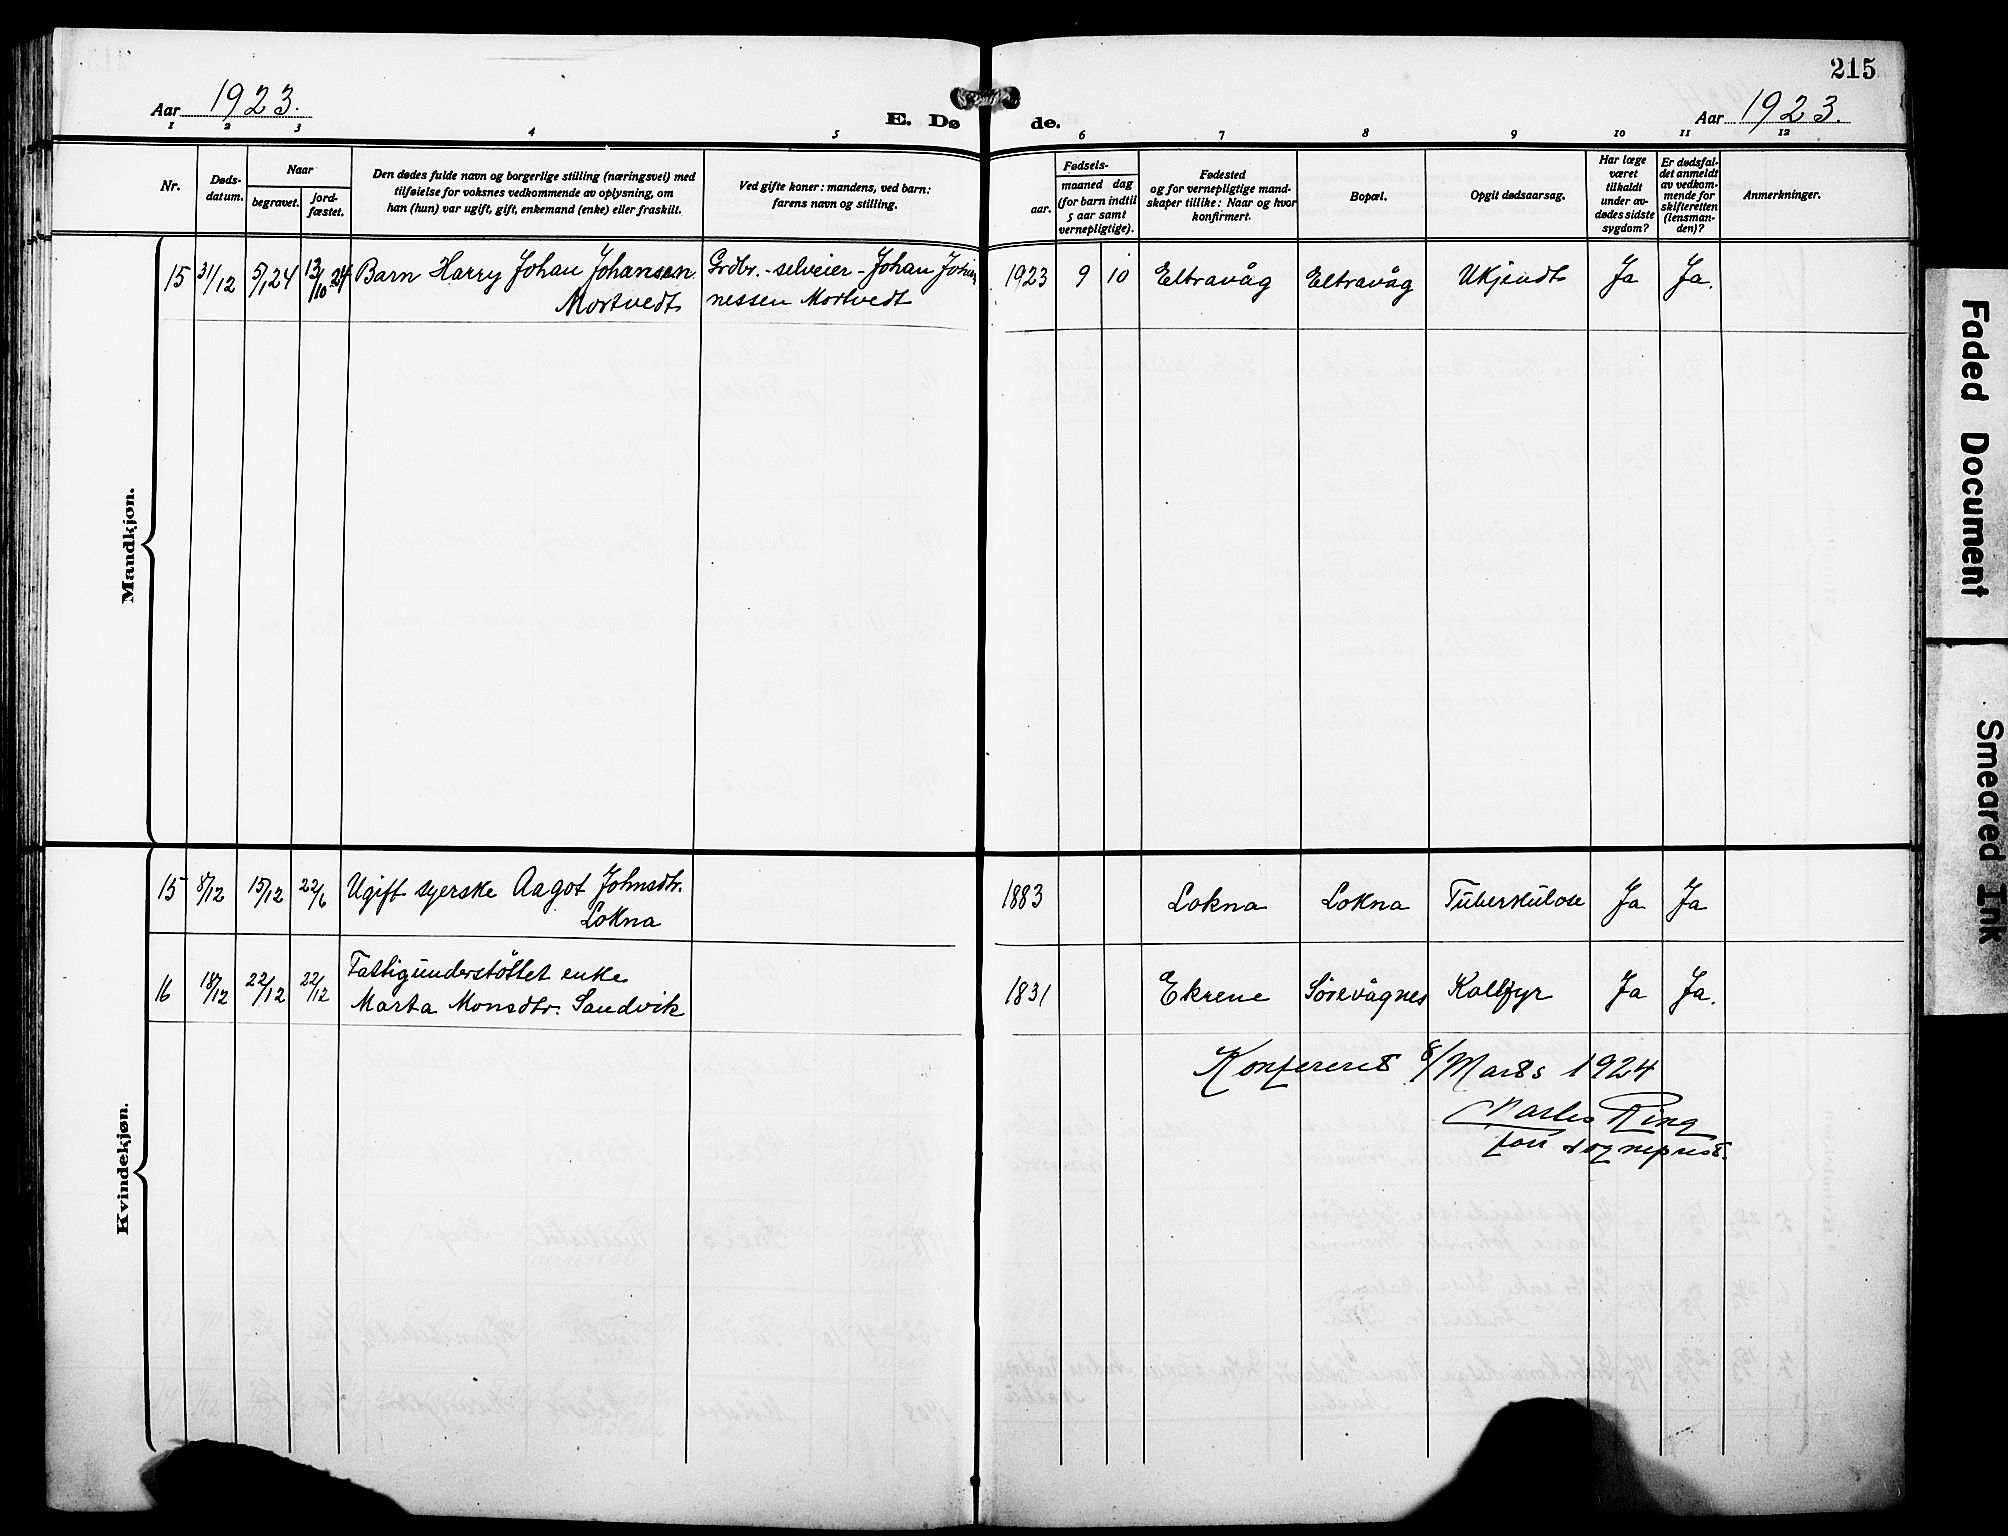 215
Aar 1923.
E. Døde.
Aar 1923.
1 2 3 4 5 6 7 8 9 10 11 12
Nr.
Døds-
datum.
Naar
begravet.
jord-
fæstet.
Den dødes fulde navn og borgerlige stilling (næringsvei) med
tilføielse for voksnes vedkommende av oplysning, om
han (hun) var ugift, gift, enkemand (enke) eller fraskilt.
Ved gifte koner: mandens, ved barn:
farens navn og stilling.
Fødsels-
aar.
maaned dag
(for barn indtil
5 aar samt
vernepligtige).
Fødested
og for vernepligtige mand-
skaper tillike: Naar og hvor
konfirmert.
Bopæl.
Opgit dødsaarsag.
Har læge
været
tilkaldt
under av-
dødes sidste
sygdom?
Er dødsfal-
det anmeldt
av vedkom-
mende for
skifteretten
(lensman-
den)?
Anmerkninger.
Mandkjøn.
15 31/12 5/1 24 13/10 24 Barn Harry Johan Johansen Grdbr. - selveier - Johan Johan 1923 9 10 Eltravåg Eltravåg Ukjendt Ja Ja.
Mortvedt nessen Mortvedt
Kvindekjøn.
15 8/12 15/12 22/6 Ugift syerske Aagot Johnsdtr. 1883 Lokna Lokna Tuberkulose Ja Ja
Lokna
16 18/12 22/12 22/12 Fattigunderstøttet enke
Marta Monsdtr. Sandvik 1831 Ekrene Sörevågnes Ja Ja.
Konferert 8/Mars 1924
Ring
sogneprest.
Faded Document
Smeared Ink